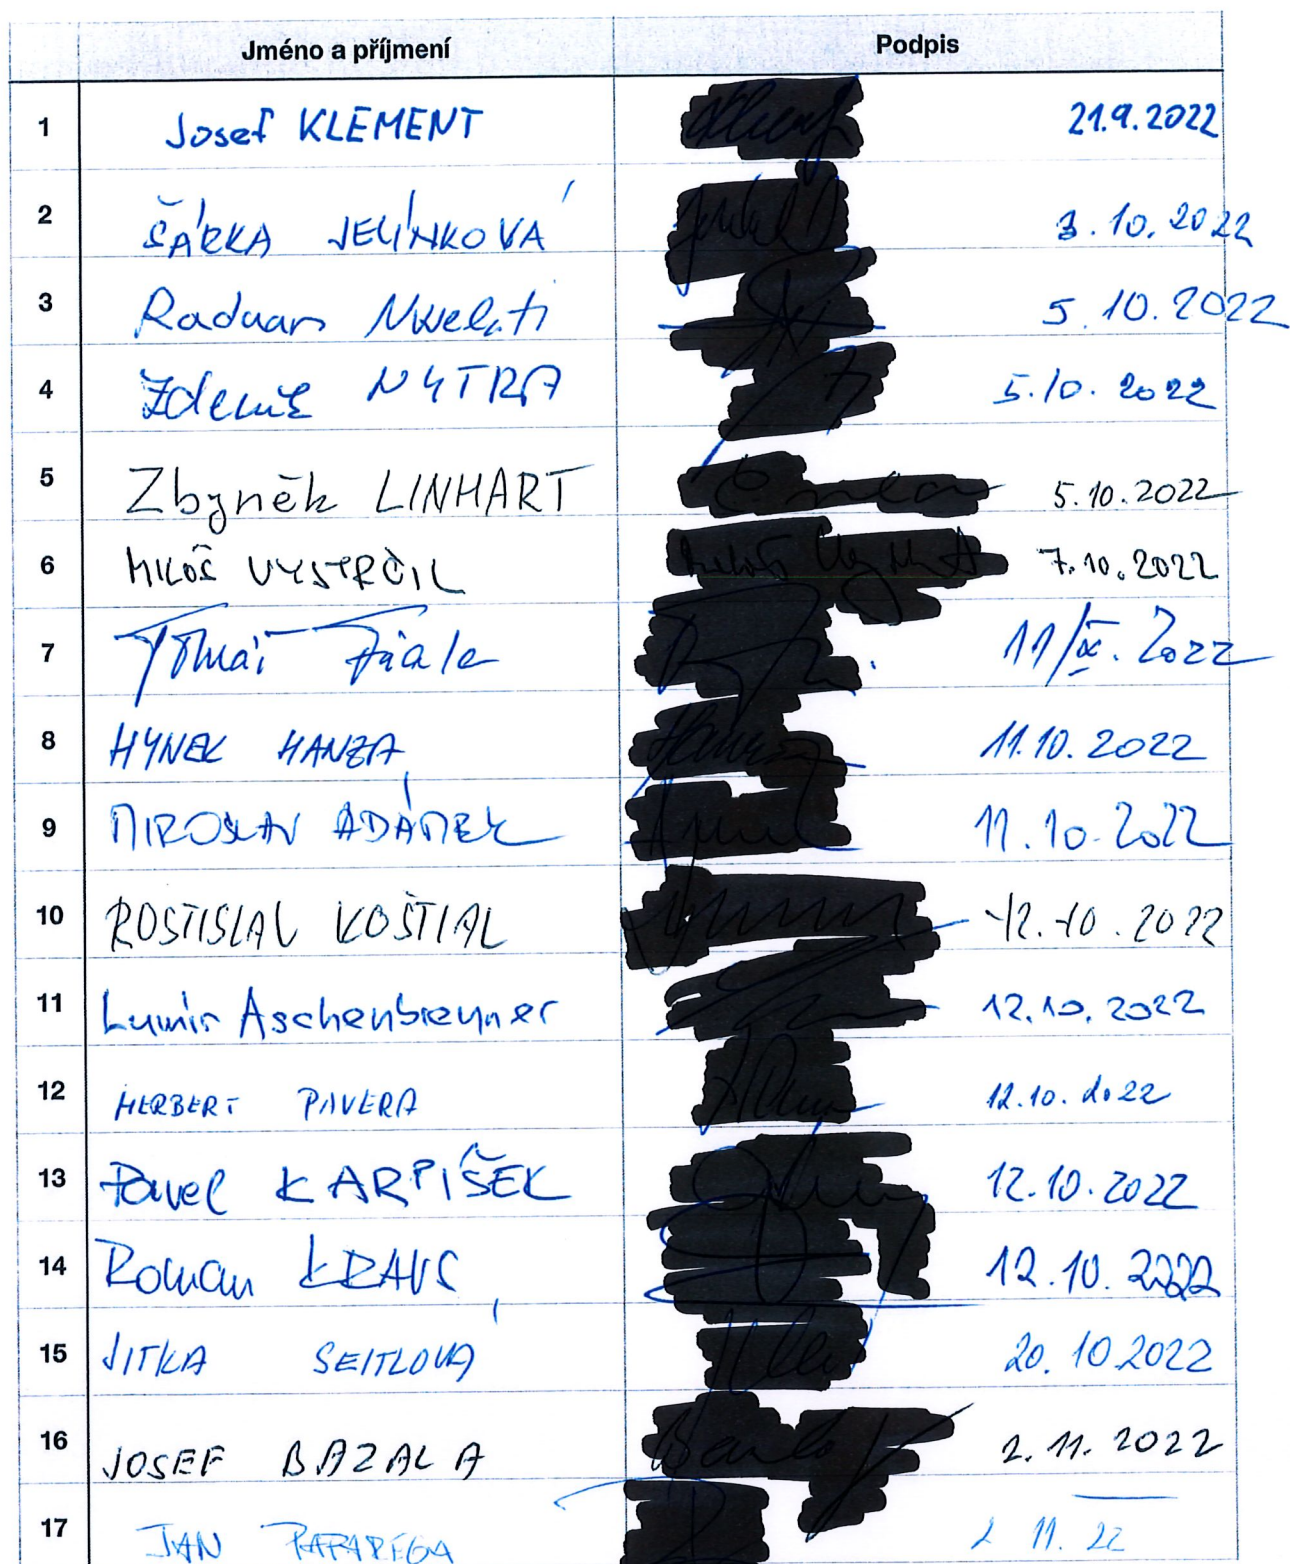 Jméno a příjmení Podpis
1 Josef KLEMENT 21.9.2022
2 ŠÁRKA JELÍNKOVÁ 3.10.2022
3 Raduan Nwelati 5.10.2022
4 Zdeněk NYTRA 5.10.2022
5 Zbyněk LINHART 5.10.2022
6 MILOŠ VYSTRČIL 7.10.2022
7 Tomáš 11/ . 2022
8 HYNEK HANZA 11.10.2022
9 MIROSLAV ADÁMEK 11.10.2022
10 ROSTISLAV KOŠTIAL 12.10.2022
11 Lumír Aschenbrenner 12.10.2022
12 HERBERT PAVERA 12.10.2022
13 Pavel KARPÍŠEK 12.10.2022
14 Roman KRAUS 12.10.2022
15 JITKA SEITLOVÁ 20.10.2022
16 JOSEF BAZALA 2.11.2022
17 JAN 2 11. 22